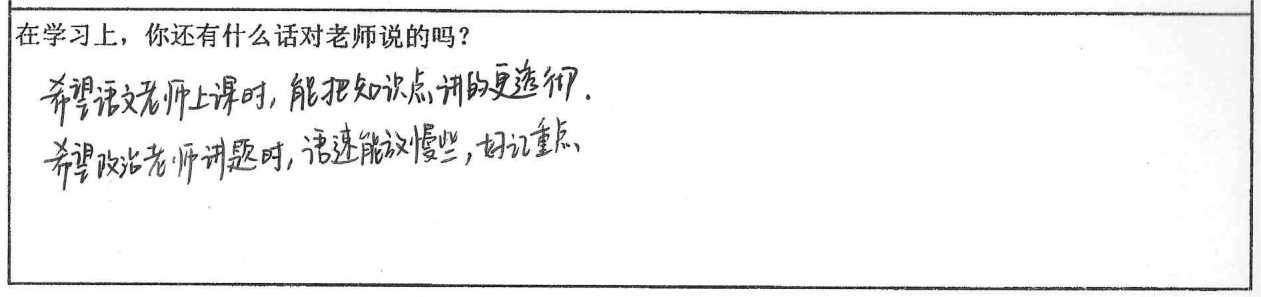 在学习上，你还有什么话对老师说的吗？
希望语文老师上课时，能把知识点讲的更透彻.
希望政治老师讲题时，语速能放慢些，好记重点、